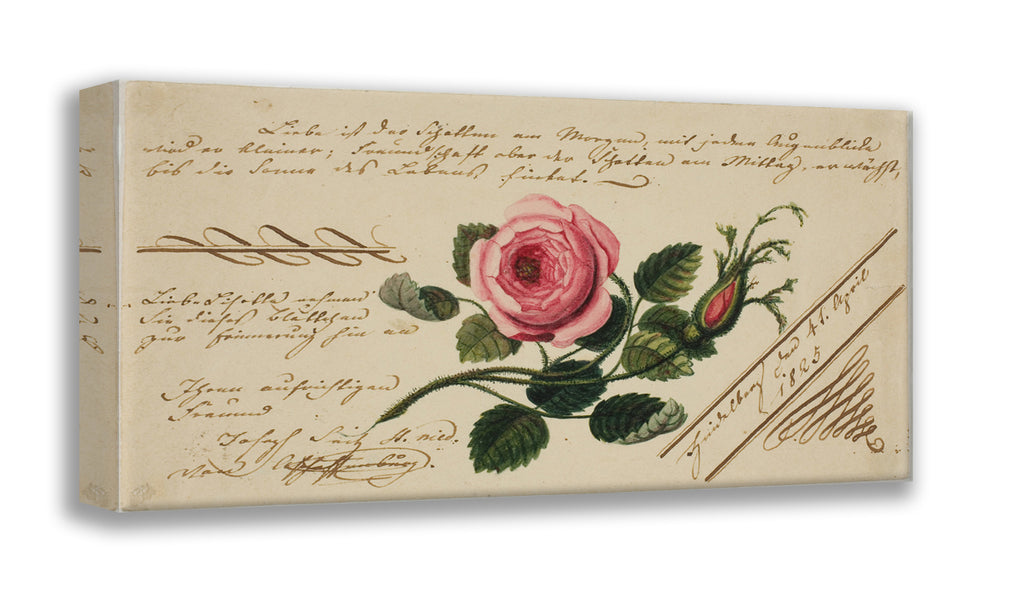 Liebe ist der Schatten am Morgen, mit jedem Augenblicke
wird er kleiner; Freundschaft aber der Schatten am Mittag, er wächst,
bis die Sonne des Lebens sinket.
Liebe nehmen
Sie dieses Blättchen
zur Erinnerung hin an
Ihren aufrichtigen
Freund
Joseph
von
Heidelberg den 41. April
1825